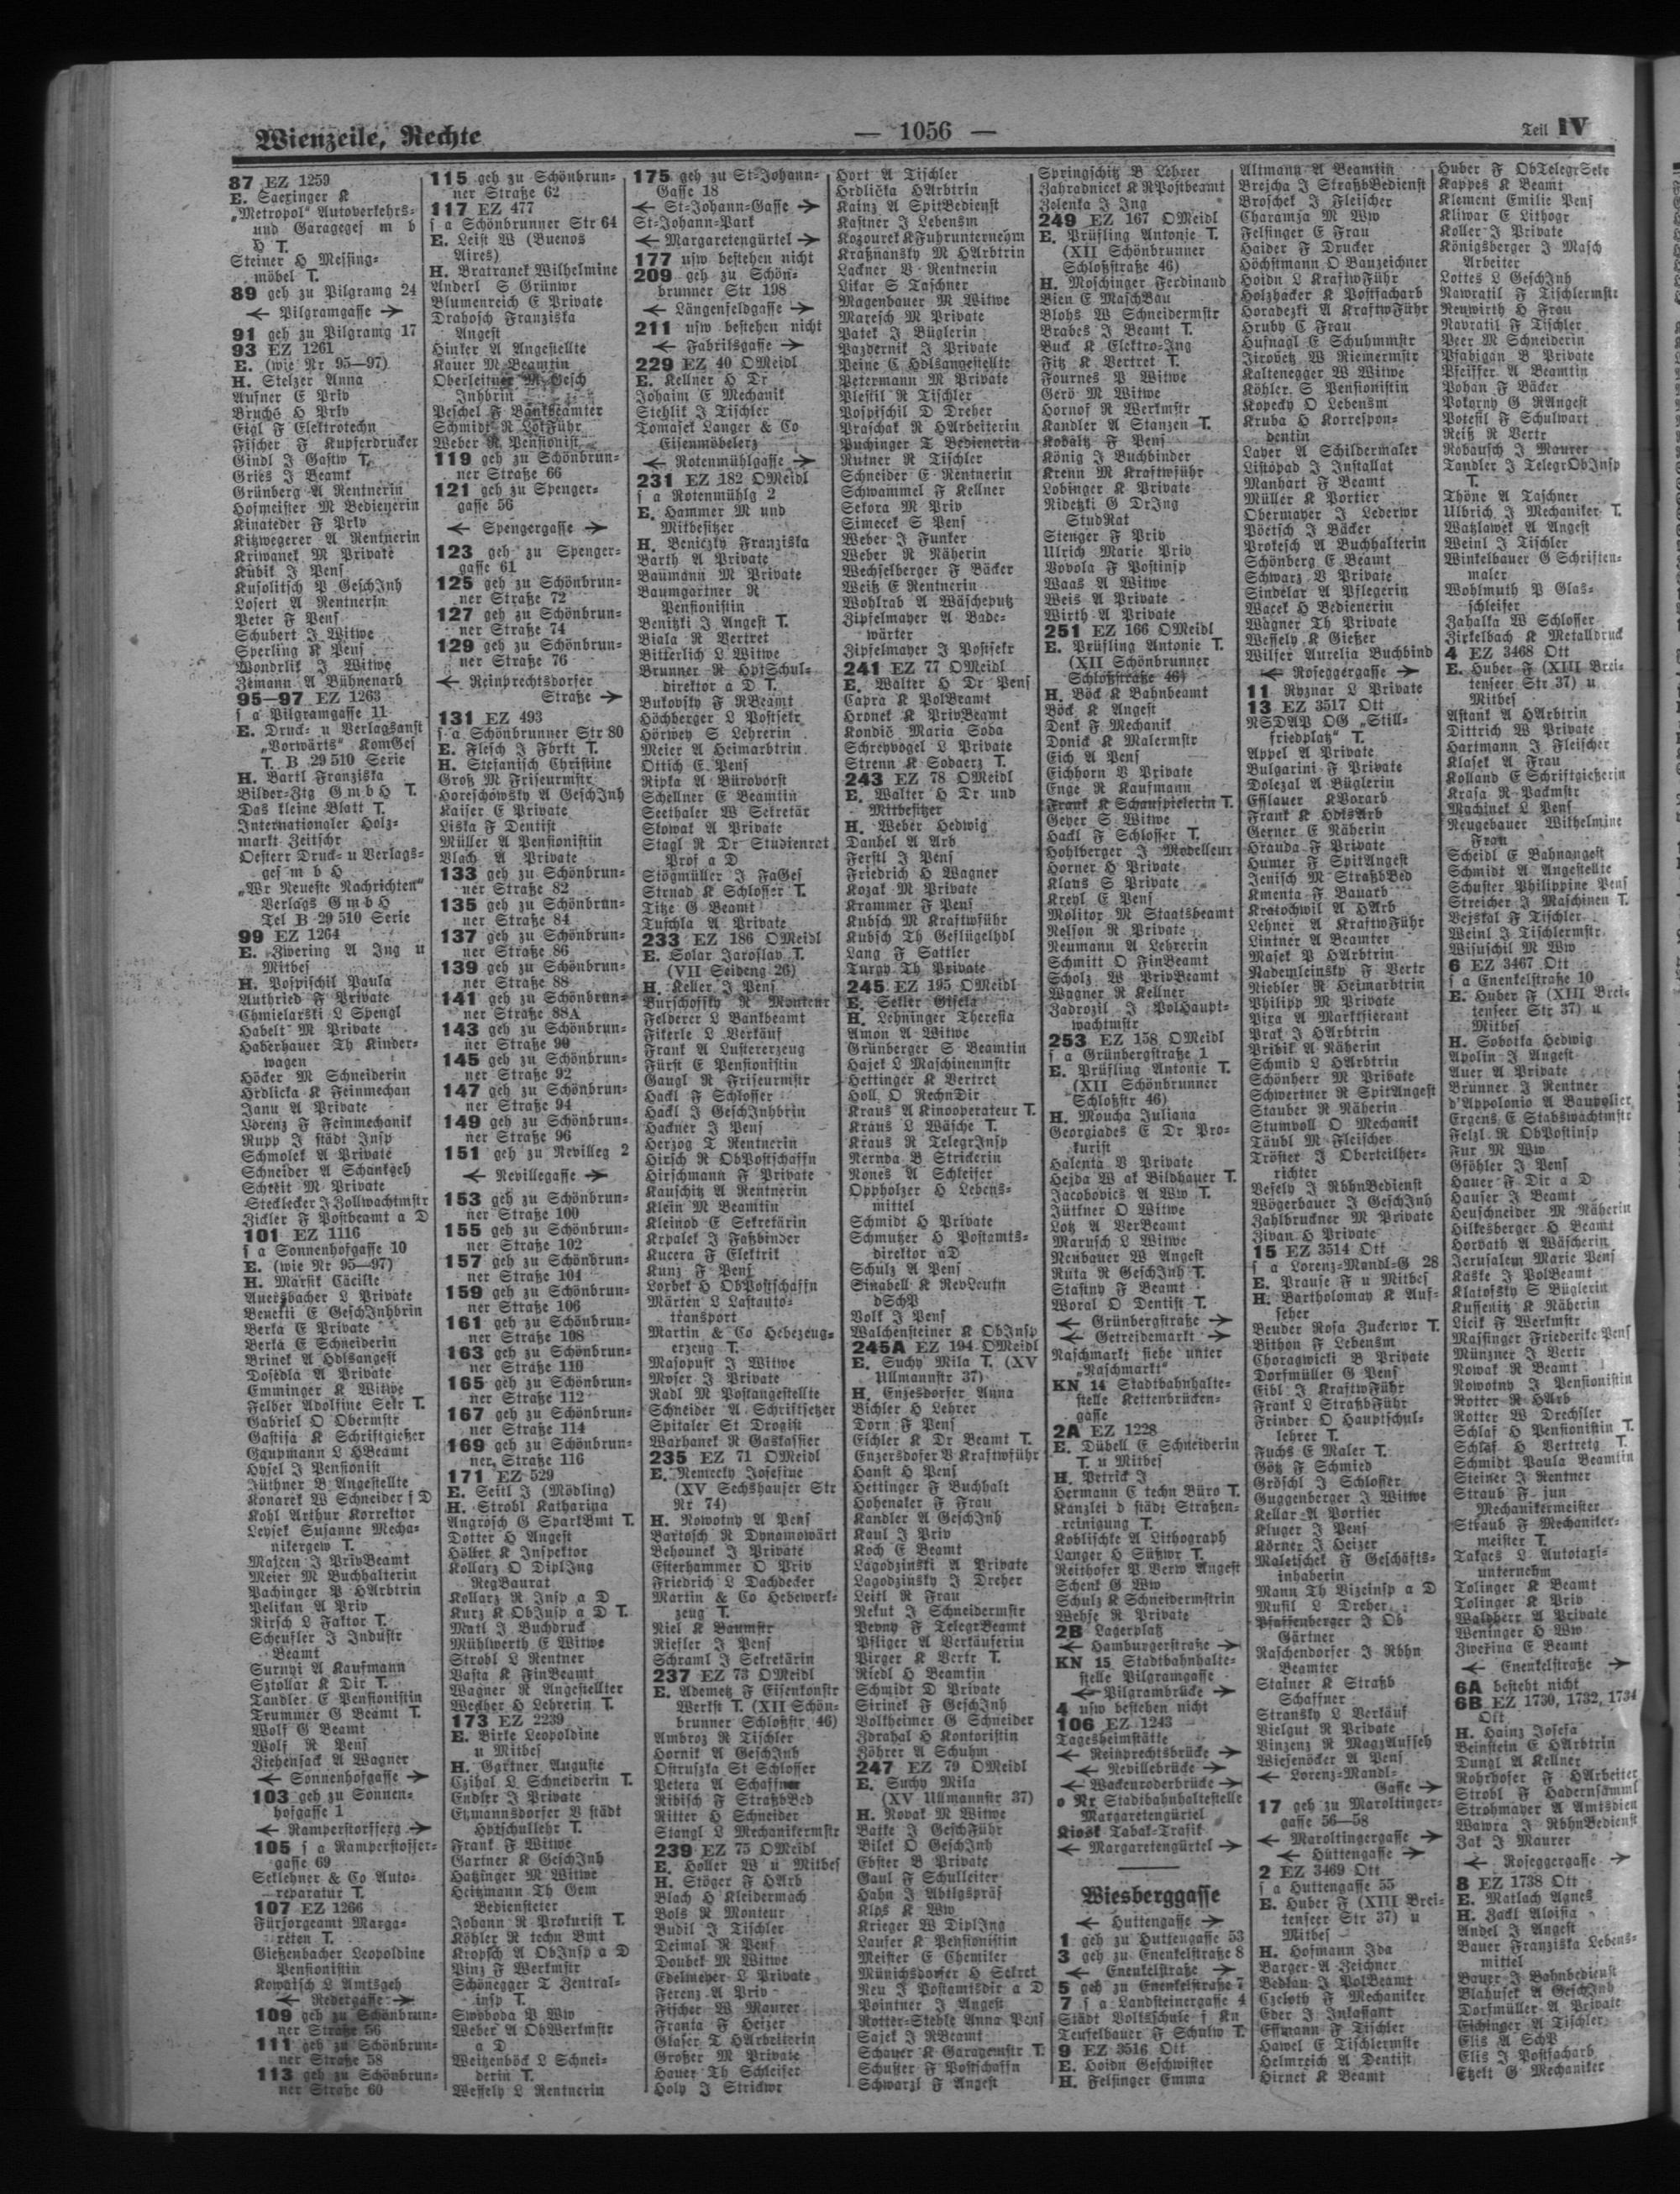 Wienzeile, Rechte
— 1056 —
Teil IV
87 EZ 1259
E. Saxinger K
„Metropol“ Autoverkehrs-
und Garageges m b
H T.
Steiner H Messing-
möbel T.
89 geh zu Pilgramg 24
← Pilgramgasse →
91 geh zu Pilgramg 17
93 EZ 1261
E. (wie Nr 95—97)
H. Stelzer Anna
Aufner E Priv
Bruchs H Priv
Eigl F Elektrotechn
Fischer F Kupferdrucker
Gindl J Gastw T.
Gries J Beamt
Grünberg A Rentnerin
Hofmeister M Bedienerin
Kinateder F Priv
Kitzwegerer A Rentnerin
Kriwanek M Private
Kubik J Pens
Kusolitsch P GeschInh
Losert A Rentnerin
Peter F Pens
Schubert J Witwe
Sperling K Pens
Wondrlik J Witwe
Zemann A Bühnenarb
95—97 EZ 1263
s a Pilgramgasse 11
E. Druck- u Verlagsanst
„Vorwärts“ KomGes
T. B 29 510 Serie
H. Bartl Franziska
Bilder-Ztg G m b H T.
Das kleine Blatt T.
Internationaler Holz-
markt Zeitschr
Oesterr Druck- u Verlags-
ges m b H
„Wr Neueste Nachrichten“
Verlags G m b H
Tel B 29 510 Serie
99 EZ 1264
E. Zwering A Ing u
Mitbes
H. Pospischil Paula
Authried F Private
Chmielarski L Spengl
Habelt M Private
Haberhauer Th Kinder-
wagen
Höcker M Schneiderin
Hrdlicka K Feinmechan
Janu A Private
Lorenz F Feinmechanik
Rupp J städt Insp
Schmolek A Private
Schneider A Schankgeh
Schreit M Private
Stecklecker J Zollwachtmstr
Zickler F Postbeamt a D
101 EZ 1116
s a Sonnenhofgasse 10
E. (wie Nr 95—97)
H. Marsik Cäcilie
Auersbacher L Private
Benekti E GeschInhbrin
Berka E Private
Berka E Schneiderin
Brinek A Hdlsangest
Dosedla A Private
Emminger K Witwe
Felber Adolfine Sekr T.
Gabriel O Obermstr
Gastisa K Schriftgießer
Gaupmann L HBeamt
Hysel J Pensionist
Jüthner B Angestellte
Konarek W Schneider s D
Kohl Arthur Korrektor
Leysek Susanne Mecha-
nikergew T.
Majcen J PrivBeamt
Meier M Buchhalterin
Pachinger P HArbtrin
Pelikan A Priv
Pirsch L Faktor T.
Scheufler J Industr
Beamt
Surnyi A Kaufmann
Sztollar K Dir T.
Tandler E Pensionistin
Trummer G Beamt T.
Wolf G Beamt
Wolf R Pens
Ziehensack A Wagner
← Sonnenhofgasse →
103 geh zu Sonnen-
hofgasse 1
← Ramperstofferg →
105 s a Ramperstoffer-
gasse 69
Setlehner & Co Auto-
reparatur T.
107 EZ 1266
Fürsorgeamt Marga-
reten T.
Gießenbacher Leopoldine
Pensionistin
Kowatsch L Amtsgeh
← Redergasse →
109 geh zu Schönbrun-
ner Straße 56
111 geh zu Schönbrun-
ner Straße 58
113 geh zu Schönbrun-
ner Straße 60
115 geh zu Schönbrun-
ner Straße 62
117 EZ 477
s a Schönbrunner Str 64
E. Leist W (Buenos
Aires)
H. Bratranek Wilhelmine
Anderl S Grünwr
Blumenreich E Private
Drahosch Franziska
Angest
Hinker A Angestellte
Kauer M Beamtin
Oberleitner M Gesch
Inhbrin
Peschel F Bankbeamter
Schmidt R LokFühr
Weber R Pensionist
119 geh zu Schönbrun-
ner Straße 66
121 geh zu Spenger-
gasse 56
← Spengergasse →
123 geh zu Spenger-
gasse 61
125 geh zu Schönbrun-
ner Straße 72
127 geh zu Schönbrun-
ner Straße 74
129 geh zu Schönbrun-
ner Straße 76
← Reinprechtsdorfer
Straße →
131 EZ 493
s a Schönbrunner Str 80
E. Flesch J Fbrkt T.
H. Stefanisch Christine
Groß M Friseurmstr
Horeschowsky A GeschInh
Kaiser E Private
Liska F Dentist
Müller A Pensionistin
Vlach A Private
133 geh zu Schönbrun-
ner Straße 82
135 geh zu Schönbrun-
ner Straße 84
137 geh zu Schönbrun-
ner Straße 86
139 geh zu Schönbrun-
ner Straße 88
141 geh zu Schönbrun-
ner Straße 88A
143 geh zu Schönbrun-
ner Straße 90
145 geh zu Schönbrun-
ner Straße 92
147 geh zu Schönbrun-
ner Straße 94
149 geh zu Schönbrun-
ner Straße 96
151 geh zu Nevilleg 2
← Nevillegasse →
153 geh zu Schönbrun-
ner Straße 100
155 geh zu Schönbrun-
ner Straße 102
157 geh zu Schönbrun-
ner Straße 104
159 geh zu Schönbrun-
ner Straße 106
161 geh zu Schönbrun-
ner Straße 108
163 geh zu Schönbrun-
ner Straße 110
165 geh zu Schönbrun-
ner Straße 112
167 geh zu Schönbrun-
ner Straße 114
169 geh zu Schönbrun-
ner Straße 116
171 EZ 529
E. Seitl J (Mödling)
H. Strobl Katharina
Angrosch G SparkBmt T.
Dotter H Angest
Höller K Inspektor
Kollarz O DiplIng
RegBaurat
Kollarz R Insp a D
Kurz K ObInsp a D T.
Matl J Buchdruck
Mühlwerth E Witwe
Strobl L Rentner
Vasta K FinBeamt
Wagner R Angestellter
Wecher H Lehrerin T.
173 EZ 2239
E. Birke Leopoldine
u Mitbes
H. Gartner Auguste
Czihal L Schneiderin T.
Endler J Private
Etzmannsdorfer V städt
Hptschullehr T.
Frank F Witwe
Gartner K GeschInh
Hatzinger M Witwe
Heitzmann Th Gem
Bediensteter
Johann R Prokurist T.
Köhler R techn Bmt
Kropsch A ObInsp a D
Pinz F Werkmstr
Schönegger T Zentral-
insp T.
Swoboda P Ww
Weber A ObWerkmstr
a D
Weitzenböck L Schnei-
derin T.
Wessely L Rentnerin
175 geh zu St-Johann-
Gasse 18
← St-Johann-Gasse →
St-Johann-Park
← Margaretengürtel →
177 usw bestehen nicht
209 geh zu Schön-
brunner Str 198
← Längenfeldgasse →
211 usw bestehen nicht
← Fabriksgasse →
229 EZ 40 OMeidl
E. Kellner H Dr
Johaim E Mechanik
Stehlik J Tischler
Tomasek Langer & Co
Eisenmöbelerz
← Rotenmühlgasse →
231 EZ 182 OMeidl
s a Rotenmühlg 2
E. Hammer M und
Mitbesitzer
H. Beniczky Franziska
Barth A Private
Baumann M Private
Baumgartner R
Pensionistin
Benitzki J Angest T.
Biala R Vertret
Bitterlich L Witwe
Brunner R HptSchul-
direktor a D T.
Bukovsky F RBeamt
Höchberger L Postsekr
Hörwey S Lehrerin
Meier A Heimarbtrin
Ottich E Pens
Ripka A Bürovorst
Schellner E Beamtin
Seethaler W Sekretär
Slowak A Private
Stagl R Dr Studienrat
Prof a D
Stögmüller J FaGes
Strnad K Schlosser T.
Titze G Beamt
Tuschla A Private
233 EZ 186 OMeidl
E. Solar Jaroslav T.
(VII Seideng 26)
H. Keller J Pens
Burschofsky R Monteur
Felderer L Bankbeamt
Fikerle L Verkäuf
Frank A Lustererzeug
Fürst E Pensionistin
Gaugl R Friseurmstr
Hackl F Schlosser
Hackl J GeschInhbrin
Hackner J Pens
Herzog T Rentnerin
Hirsch R ObPostschaffn
Hirschmann F Private
Kauschitz A Rentnerin
Klein M Beamtin
Kleinod E Sekretärin
Krpalek J Faßbinder
Kucera F Elektrik
Kunz F Pens
Lorbek H ObPostschaffn
Märten L Lastauto-
transport
Martin & Co Hebezeug-
erzeug T.
Masopust J Witwe
Moser J Private
Radl M Postangestellte
Schneider A Schriftsetzer
Spitaler St Drogist
Warhanek R Gaskassier
235 EZ 71 OMeidl
E. Nemecky Josefine
(XV Sechshauser Str
Nr 74)
H. Nowotny A Pens
Bartosch R Dynamowärt
Behounek J Private
Esterhammer O Priv
Friedrich L Dachdecker
Martin & Co Hebewerk-
zeug T.
Niel K Baumstr
Riesler J Pens
Schraml J Sekretärin
237 EZ 73 OMeidl
E. Ademetz F Eisenkonstr
Werkst T. (XII Schön-
brunner Schloßstr 46)
Ambroz R Tischler
Hornik A GeschInh
Ostruszka St Schlosser
Petera A Schaffner
Ribisch F StraßbBed
Ritter H Schneider
Stangl L Mechanikermstr
239 EZ 75 OMeidl
E. Holler W u Mitbes
H. Stöger F HArb
Blach H Kleidermach
Bols R Monteur
Budil J Tischler
Deimal R Pens
Doubek M Witwe
Edelmeyer L Private
Ferenz A Priv
Fischer W Maurer
Franta F Heizer
Glaser T HArbeiterin
Großer M Private
Hauer Th Schleifer
Holy J Strickwr
Hort A Tischler
Hrdlička HArbtrin
Kainz A SpitBedienst
Kastner J Lebensm
Kazourek K Fuhrunternehm
Kraßnansky M HArbtrin
Lackner V Rentnerin
Likar S Taschner
Magenbauer M Witwe
Maresch M Private
Patek J Büglerin
Pazdernik J Private
Peine C Hdlsangestellte
Petermann M Private
Plestil R Tischler
Pospischil D Dreher
Praschak R HArbeiterin
Puchinger T Bedienerin
Rutner R Tischler
Schneider E Rentnerin
Schwammel F Kellner
Sekora M Priv
Simecek S Pens
Weber J Funker
Weber R Näherin
Wechselberger F Bäcker
Weiß E Rentnerin
Wohlrab A Wäscheputz
Zipfelmayer A Bade-
wärter
Zipfelmayer J Postsekr
241 EZ 77 OMeidl
E. Walter H Dr Pens
Capra K PolBeamt
Hronek K PrivBeamt
Kondič Maria Soda
Schreyvogel L Private
Strenn K Sodaerz T.
243 EZ 78 OMeidl
E. Walter H Dr und
Mitbesitzer
H. Weber Hedwig
Danhel A Arb
Ferstl J Pens
Friedrich H Wagner
Kozak M Private
Krammer F Pens
Kubsch M Kraftwführ
Kubsch Th Geflügelhdl
Lang F Sattler
Turay Th Private
245 EZ 195 OMeidl
E. Seller Gisela
H. Lehninger Theresia
Amon A Witwe
Grünberger S Beamtin
Hajek L Maschinenmstr
Hettinger K Vertret
Holl O RechnDir
Kraus A Kinooperateur T.
Kraus L Wäsche T.
Kraus R TelegrInsp
Nernda B Strickerin
Nones A Schleifer
Oppholzer H Lebens-
mittel
Schmidt H Private
Schmutzer H Postamts-
direktor aD
Schulz A Pens
Sinabell K RevLeutn
dSchP
Volk J Pens
Walchensteiner K ObInsp
245A EZ 194 OMeidl
E. Suchy Mila T. (XV
Ullmannstr 37)
H. Enzesdorfer Anna
Bichler H Lehrer
Dorn F Pens
Eichler K Dr Beamt T.
Enzersdofer V Kraftwführ
Hanst H Pens
Hettinger F Buchhalt
Hohenaler F Frau
Kandler A GeschInh
Kaul J Priv
Koch E Beamt
Lagodzinski A Private
Lagodzinsky J Dreher
Leitl R Frau
Nekut J Schneidermstr
Pevny F TelegrBeamt
Pfliger A Verkäuferin
Pirger K Vertr T.
Riedl H Beamtin
Schmidt D Private
Sirinek F GeschInh
Volkheimer G Schneider
Zdrahal H Kontoristin
Zöhrer A Schuhm
247 EZ 79 OMeidl
E. Suchy Mila
(XV Ullmannstr 37)
H. Novak M Witwe
Batke J GeschFühr
Bilek O GeschInh
Ebster B Private
Gaul F Schulleiter
Hahn J Abtlgspräs
Klos K Ww
Krieger W DiplIng
Laufer K Pensionistin
Meister E Chemiker
Münichsdorfer H Sekret
Neu J Postamtsdir a D
Pointner J Angest
Rotter-Stehle Anna Pens
Sajek J RBeamt
Schauer K Garagemstr T.
Schuster F Postschaffn
Schwarzl F Angest
Springschitz B Lehrer
Zahradnicek K RPostbeamt
Zelenka J Ing
249 EZ 167 OMeidl
E. Prüfling Antonie T.
(XII Schönbrunner
Schloßstraße 46)
H. Moschinger Ferdinand
Bien E MaschBau
Blohs W Schneidermstr
Brabes J Beamt T.
Buck K Elektro-Ing
Fitz K Vertret T.
Fournes P Witwe
Gerö M Witwe
Hornof R Werkmstr
Kandler A Stanzen T.
Kobaltz F Pens
König J Buchbinder
Krenn M Kraftwführ
Lobinger K Private
Nidetzki G DrIng
StudRat
Stenger F Priv
Ulrich Marie Priv
Vovola F Postinsp
Waas A Witwe
Weis A Private
Wirth A Private
251 EZ 166 OMeidl
E. Prüfling Antonie T.
(XII Schönbrunner
Schloßstraße 46)
H. Böck K Bahnbeamt
Böck K Angest
Denk F Mechanik
Donick K Malermstr
Eich A Pens
Eichhorn V Private
Enge R Kaufmann
Frank K Schauspielerin T.
Geyer S Witwe
Hackl F Schlosser T.
Hohlberger J Modelleur
Horner H Private
Klaus S Private
Kreyl E Pens
Molitor M Staatsbeamt
Nelson R Private
Neumann A Lehrerin
Schmitt O FinBeamt
Scholz W PrivBeamt
Wagner R Kellner
Zadrozil J PolHaupt-
wachtmstr
253 EZ 158 OMeidl
s a Grünbergstraße 1
E. Prüfling Antonie T.
(XII Schönbrunner
Schloßstr 46)
H. Moucha Juliana
Georgiades E Dr Pro-
kurist
Halenta V Private
Hejda W ak Bildhauer T.
Jacobovics A Ww T.
Jütkner O Witwe
Lotz A VerBeamt
Marusch L Witwe
Neubauer W Angest
Ruta R GeschInh T.
Stastny F Beamt
Woral O Dentist T.
← Grünbergstraße →
← Getreidemarkt →
Naschmarkt siehe unter
„Naschmarkt“
KN 14 Stadtbahnhalte-
stelle Kettenbrücken-
gasse
2A EZ 1228
E. Dübell E Schneiderin
T. u Mitbes
H. Petrick J
Hermann C techn Büro T.
Kanzlei d städt Straßen-
reinigung T.
Koblischke A Lithograph
Langer H Süßwr T.
Reithofer P Verw Angest
Schenk G Ww
Schulz K Schneidermstrin
Wehse R Private
2B Lagerplatz
← Hamburgerstraße →
KN 15 Stadtbahnhalte-
stelle Pilgramgasse
← Pilgrambrücke →
4 usw bestehen nicht
106 EZ 1243
Tagesheimstätte
← Reinprechtsbrücke →
← Nevillebrücke →
← Wackenroderbrücke →
o Nr Stadtbahnhaltestelle
Margaretengürtel
Kiosk Tabak-Trafik
← Margaretengürtel →
Wiesberggasse
← Huttengasse →
1 geh zu Huttengasse 53
3 geh zu Enenkelstraße 8
← Enenkelstraße →
5 geh zu Enenkelstraße 7
7 s a Landsteinergasse 4
Städt Volksschule f Kn
Teufelbauer F Schulw T.
9 EZ 3516 Ott
E. Hoidn Geschwister
H. Felsinger Emma
Altmann A Beamtin
Brejcha J StraßbBedienst
Broschek J Fleischer
Charamza M Ww
Felsinger E Frau
Haider F Drucker
Höchstmann O Bauzeichner
Hoidn L KraftwFühr
Holzhacker K Postfacharb
Horadezki A KraftwFühr
Hruby C Frau
Hufnagl E Schuhmmstr
Jirovetz W Riemermstr
Kaltenegger W Witwe
Köhler S Pensionistin
Kopecky O Lebensm
Kruba H Korrespon-
dentin
Layer A Schildermaler
Listopad J Installat
Manhart F Beamt
Müller K Portier
Obermayer J Lederwr
Pöetsch J Bäcker
Prokesch A Buchhalterin
Schönberg E Beamt
Schwarz V Private
Sindelar A Pflegerin
Wacek H Bedienerin
Wagner Th Private
Wessely K Gießer
Wilfer Aurelia Buchbind
← Roseggergasse →
11 Ryznar L Private
13 EZ 3517 Ott
NSDAP OG „Still-
friedplatz“ T.
Appel A Private
Bulgarini F Private
Dolezal A Büglerin
Esslauer K Vorarb
Frank K HdlsArb
Gerner E Näherin
Hrauda F Private
Humer F SpitAngest
Jenisch M StraßbBed
Kmenta F Bauarb
Kratochwil A HArb
Lehner A KraftwFühr
Lintner A Beamter
Masek P HArbtrin
Nademleinsky F Vertr
Niebler R Heimarbtrin
Philipp M Private
Pixa A Marktfierant
Prak J HArbtrin
Pribik A Näherin
Schmid L HArbtrin
Schönherr M Private
Schwertner R SpitAngest
Stauber R Näherin
Stumvoll O Mechanik
Täubl M Fleischer
Tröster J Oberteilher-
richter
Vesely J RbhnBedienst
Wögerbauer J GeschInh
Zahlbruckner M Private
Zivan H Private
15 EZ 3514 Ott
s a Lorenz-Mandl-G 28
E. Prause F u Mitbes
H. Bartholomay K Auf-
seher
Bender Rosa Zuckerwr T.
Bithon F Lebensm
Choragwicki B Private
Dorfmüller G Pens
Eibl J KraftwFühr
Frank L StraßbFühr
Frinder O Hauptschul-
lehrer T.
Fuchs E Maler T.
Götz F Schmied
Gröschl J Schlosser
Guggenberger J Witwe
Kellar A Portier
Kluger J Pens
Körner J Heizer
Maletschek F Geschäfts-
inhaberin
Mann Th Vizeinsp a D
Musil L Dreher
Pfaffenberger J Ob
Gärtner
Raschendorfer J Rbhn
Beamter
Stainer K Straßb
Schaffner
Stransky L Verkäuf
Vielgut R Private
Vinzenz R MagzAufseh
Wiesenöcker A Pens
← Lorenz-Mandl-
Gasse →
17 geh zu Maroltinger-
gasse 56—58
← Maroltingergasse →
← Huttengasse →
2 EZ 3469 Ott
s a Huttengasse 55
E. Huber F (XIII Brei-
tenseer Str 37) u
Mitbes
H. Hofmann Ida
Barger A Zeichner
Bedlau J PolBeamt
Czeloth F Mechaniker
Eder J Inkassant
Effmann F Tischler
Hawel E Tischlermstr
Helmreich A Dentist
Hirnet K Beamt
Huber F ObTelegrSekr
Kappes K Beamt
Klement Emilie Pens
Kliwar E Lithogr
Koller J Private
Königsberger J Masch
Arbeiter
Lottes L GeschInh
Nawratil F Tischlermstr
Neuwirth H Frau
Navratil F Tischler
Peer M Schneiderin
Pfabigan B Private
Pfeiffer A Beamtin
Pohan F Bäcker
Pokorny G RAngest
Potesil F Schulwart
Reiß R Vertr
Robausch J Maurer
Tandler J TelegrObInsp
T.
Thöne A Taschner
Ulbrich J Mechaniker T.
Watzlawek A Angest
Weinl J Tischler
Winkelbauer G Schriften-
maler
Wohlmuth P Glas-
schleifer
Zahalka W Schlosser
Zirkelbach K Metalldruck
4 EZ 3468 Ott
E. Huber F (XIII Brei-
tenseer Str 37) u
Mitbes
Astank A HArbtrin
Dittrich W Private
Hartmann J Fleischer
Klasek A Frau
Kolland E Schriftgießerin
Krasa R Packmstr
Machinek L Pens
Neugebauer Wilhelmine
Frau
Scheidl E Bahnangest
Schmidt A Angestellte
Schuster Philippine Pens
Streicher J Maschinen T.
Vejskal F Tischler
Weinl J Tischlermstr
Wisuschil M Ww
6 EZ 3467 Ott
s a Enenkelstraße 10
E. Huber F (XIII Brei-
tenseer Str 37) u
Mitbes
H. Sobotka Hedwig
Apolin J Angest
Auer A Private
Brunner J Rentner
d'Appolonio A Baupolier
Ergens E Stabswachtmstr
Felzl R ObPostinsp
Fux M Ww
Gföhler J Pens
Hauer F Dir a D
Hauser J Beamt
Heuschneider M Näherin
Hilkesberger H Beamt
Horvath A Wäscherin
Jerusalem Marie Pens
Kaske J PolBeamt
Klatofsky S Büglerin
Kussenitz K Näherin
Licik F Werkmstr
Maisinger Friederike Pens
Münzner J Vertr
Nowak R Beamt
Nowotny J Pensionistin
Rotter R HArb
Rotter W Drechsler
Schlaf H Pensionistin T.
Schlaf H Vertretg T.
Schmidt Paula Beamtin
Steiner J Rentner
Straub F jun
Mechanikermeister
Straub F Mechaniker-
meister T.
Takacs L Autotaxi-
unternehm
Tolinger K Beamt
Tolinger K Priv
Waldherr A Private
Weninger H Ww
Zweřina E Beamt
← Enenkelstraße →
6A besteht nicht
6B EZ 1730, 1732, 1734
Ott
H. Hainz Josefa
Beinstein E HArbtrin
Dungl A Kellner
Rohrhofer F HArbeiter
Strobl F Hadernsamml
Strohmayer A Amtsdien
Wawra J RbhnBedienst
Zak J Maurer
← Roseggergasse →
8 EZ 1738 Ott
E. Matlach Agnes
H. Zackl Aloisia
Andel J Angest
Bauer Franziska Lebens-
mittel
Bauer J Bahnbedienst
Blahusek A GeschInh
Dorfmüller A Private
Eichinger A Tischler
Elis A SchP
Elis J Postfacharb
Etzelt G Mechaniker